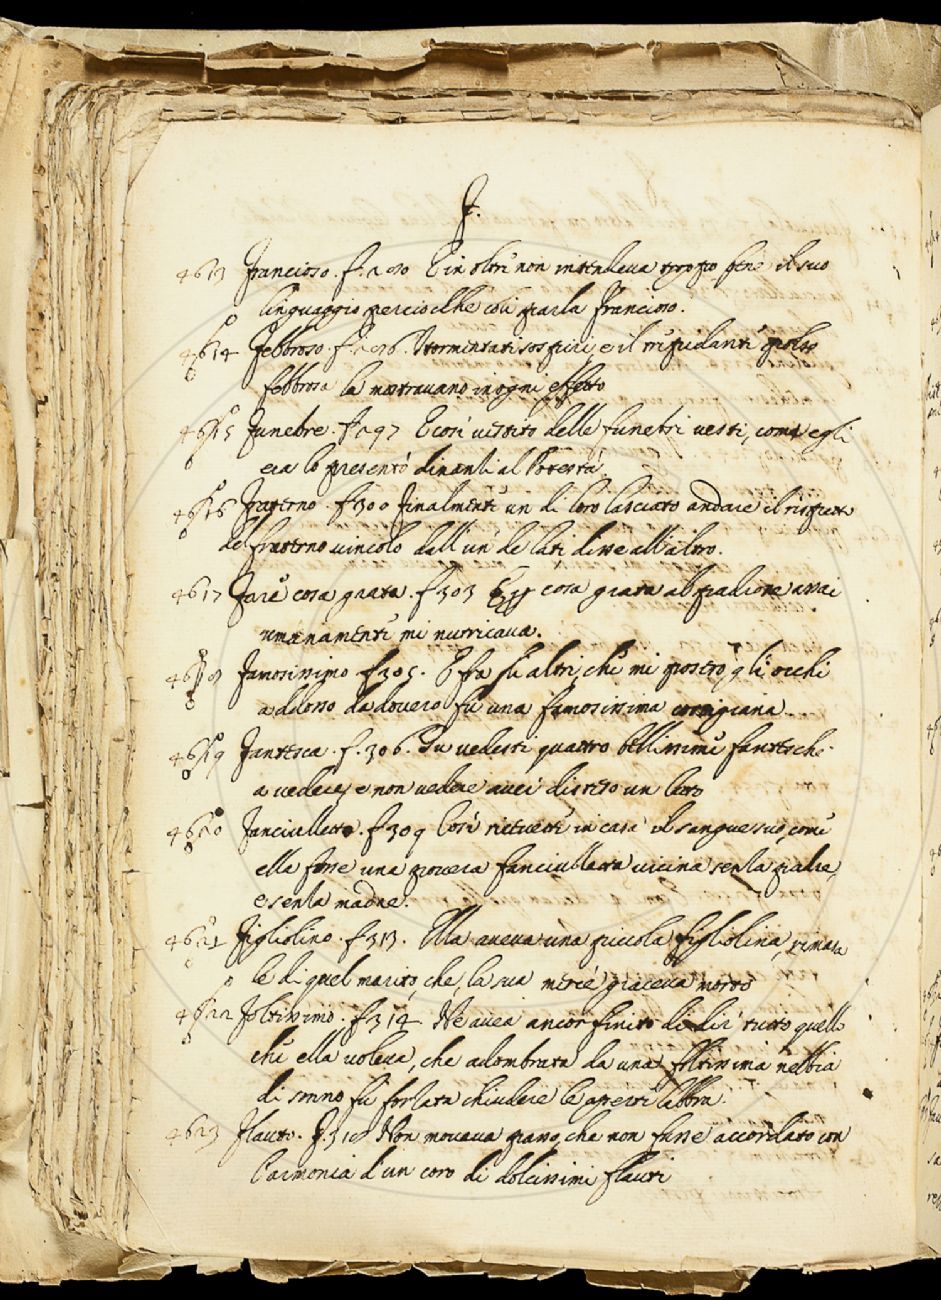 F.
4613 Francioso. f. 290 E in oltre non intendeva troppo bene il suo
linguaggio perciocche così parla Francioso.
4614 Febbroso. f. 296. tormentati sospiri, e il rifiedante polso
febbroso la mostravano in ogni effetto
4615 Funebre. f. 297 E così vestito delle funebri vesti, come egli
era lo presentò dinanzi al Potestà.
4616 Fraterno. f. 300 finalmente un di loro lasciato andare il rispetto
del fraterno vincolo dall un de lati disse all'altro.
4617 Fare cosa grata. f. 303 cosa grata al padrone assai
umanamente mi nutricava.
Famosissimo f. 305. E fra gli altri, che mi gli occhi
addosso da dovero fu una famosissima cortigiana.
4619 Fantesca. f. 306. Tu vedesti quattro bellissime fantesche
a vedere, e non vedere aver disteso un letto
4620 Fanciulletta. f. 309 Così ricevete in casa il sangue suo, come
ella fosse una povera fanciulletta vicina senza padre,
e senza madre.
4621 Figliolino. f. 313. Ella aveva una piccola figliolina, rimata
le di quel marito, che, la sua mercè giaceva morto
4622 Foltissimo. f. 314 Ne avea ancor finito di dir tutto quello
che ella voleva, che adombrata da una foltissima nebbia
di sonno fù forzata chiudere le aperte labbra.
4623 Flauto. f. 318 Non moveva passo, che non fusse accordato con
l'armonia d'un coro di dolcissimi flauti